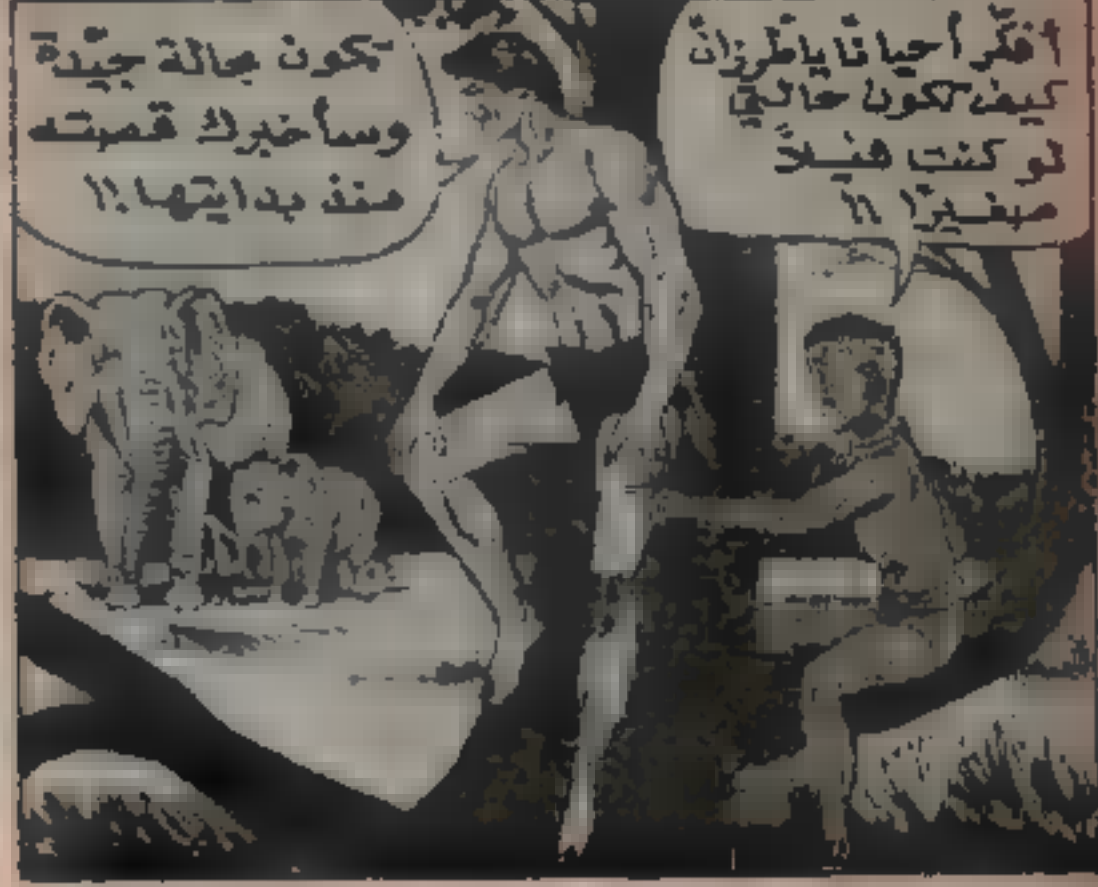 أفكّر أحيانًا يا طرزان
كيف تكون حالتي
لو كنت فيلاً
صغيرًا !!
تكون بحالة جيّدة
وسأخبرك قصته
منذ بدايتها !!